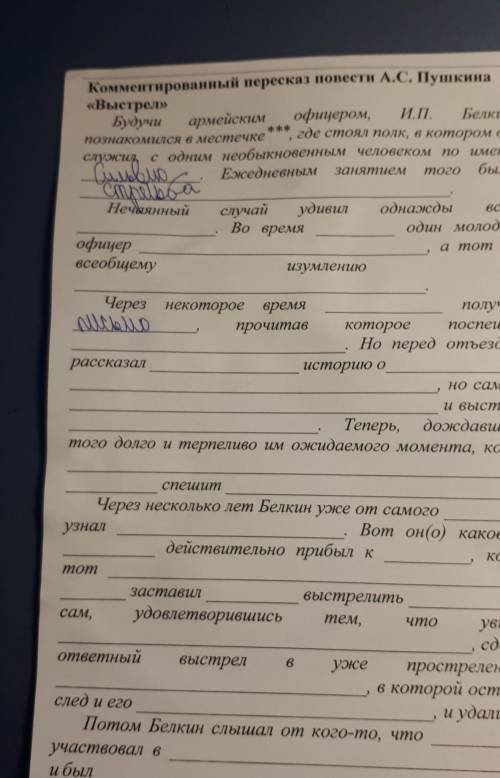 Комментированный пересказ повести А.С. Пушкина
«Выстрел»
Будучи армейским офицером, И.П. Белки
познакомился в местечке ***, где стоял полк, в котором о
служил, с одним необыкновенным человеком по име
Сильвио. Ежедневным занятием того бы
стрельба.
Нечаянный случай удивил однажды вс
. Во время один молод
офицер , а тот
всеобщему изумлению
.
Через некоторое время получ
письмо, прочитав которое поспеш
. Но перед отъезд
рассказал историю о
, но сам
и выст
. Теперь, дождавш
того долго и терпеливо им ожидаемого момента, ко
спешит
Через несколько лет Белкин уже от самого
узнал . Вот он(о) каков
действительно прибыл к , ко
тот
заставил выстрелить
сам, удовлетворившись тем, что ув
, сд
ответный выстрел в уже прострелен
, в которой ост
след и его , и удали
Потом Белкин слышал от кого-то, что
участвовал в
и был